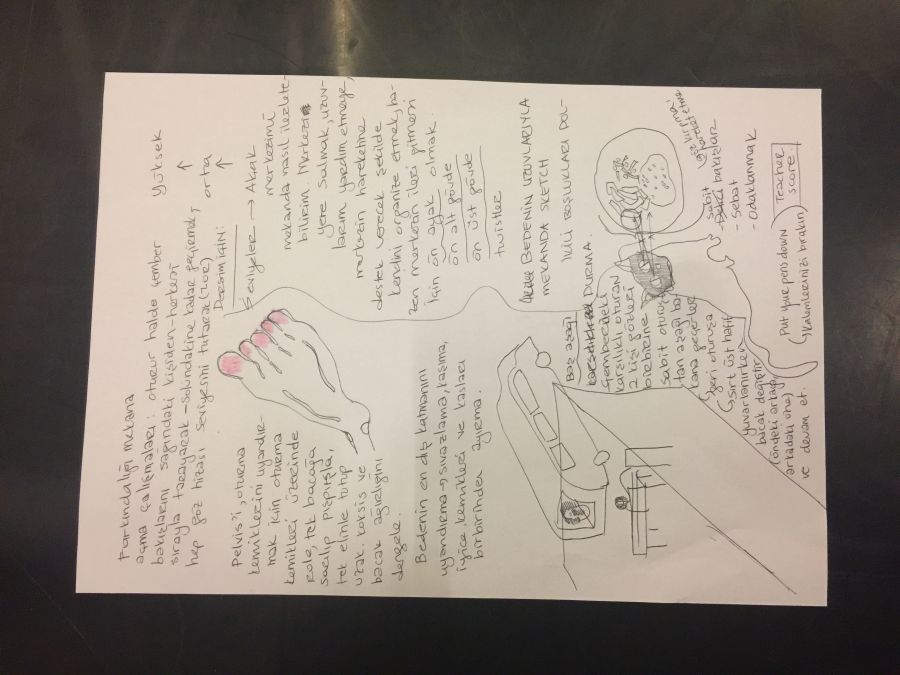 Farkındalığı mekana
açma çalışmaları: oturur halde çember
bakışlarını sağındaki kişiden-herkesi
sırayla tarayarak -solundakine kadar geçirmek,
hep göz hizası seviyesini tutarak (zor)
Pelvis'i, oturma
kemiklerini uyandır-
mak için oturma
kemikleri üzerinde
role, tek bacağa
sarılıp pışpışla,
tek elinle tutup
uzak. koksis ve
bacak ağırlığını
dengele.
Bedenin en dış katmanını
uyandırma → sıvazlama, kaşıma,
iyice, kemikleri ve kasları
birbirinden ayırma.
Yüksek
↑
orta
↑
Dersim için:
Seviyeler → Alçak
merkezimi
mekanda nasıl ilerlete-
bilirim. Merkezi
yere salmak, uzuv-
ların yardım etmeye,
merkezin hareketine
destek verecek şekilde
kendini organize etmek, ba-
zen merkezin ileri gitmesi
için ön ayak olmak.
ön alt gövde
ön üst gövde
twistler
BEDENİN UZUVLARIYLA
MEKANDA SKETCH
BOŞLUKLARI DOL-
Baş aşağı
DURMA.
Çemberdeki
karşılıklı oturan
2 kişi gözleri
birbirine
sabit oturuş-
tan aşağı ba-
kana geçerler
geri oturuşa
sırt üst hafif
yuvarlanırken
bacak değiştir
(öndeki arkaya
arkadaki öne)
ve devam et.
göz kırpma
hareket etme
sabit
bakışlar
- Sebat
- Odaklanmak
Put your pens down
kalemlerinizi bırakın
Teacher
score.